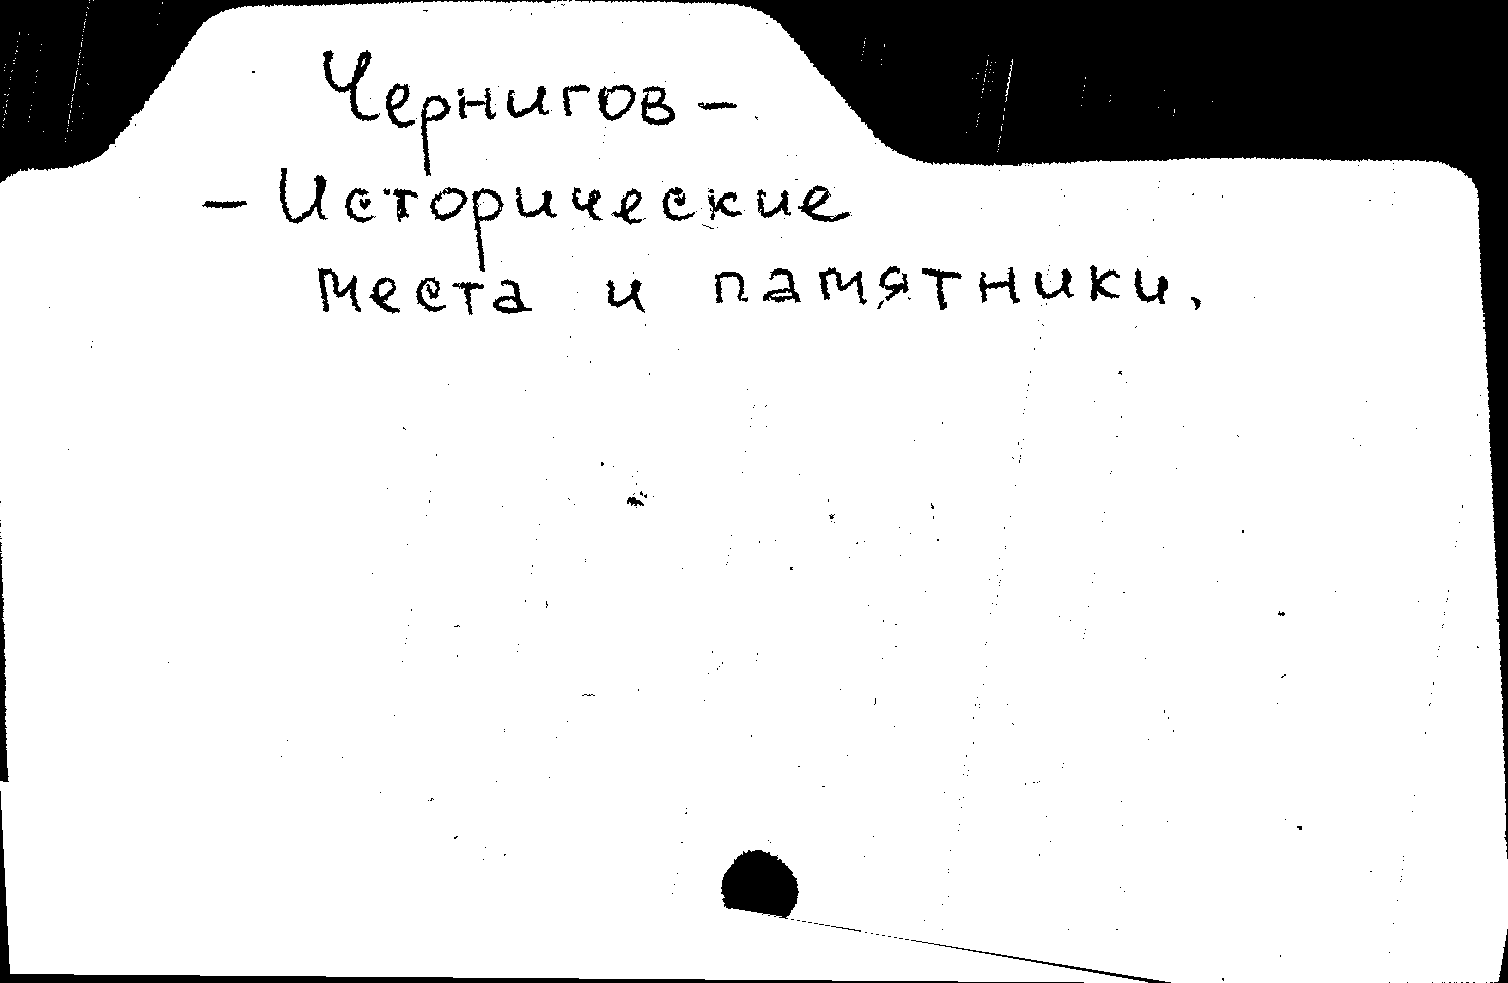 Чернигов –
– Исторические
места и памятники.